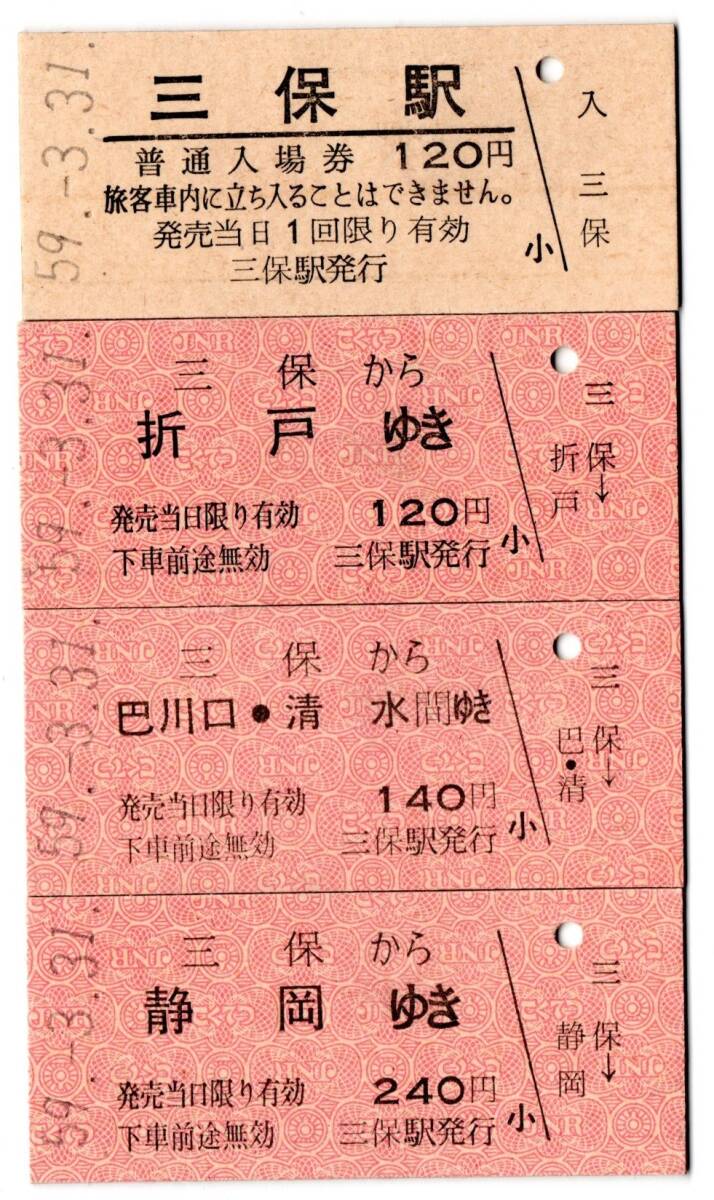 59.-3.31.
三保駅
普通入場券 120円
旅客車内に立ち入ることはできません。
発売当日1回限り有効
三保駅発行
小
入
三保
59.-3.31.
三保から
折戸ゆき
発売当日限り有効 120円
下車前途無効 三保駅発行
小
三保→
折戸
59.-3.31.
三保から
巴川口・清水間ゆき
発売当日限り有効 140円
下車前途無効 三保駅発行
小
三保→
巴・清
59.-3.31.
三保から
静岡ゆき
発売当日限り有効 240円
下車前途無効 三保駅発行
小
三保→
静岡
JNR
こくてつ